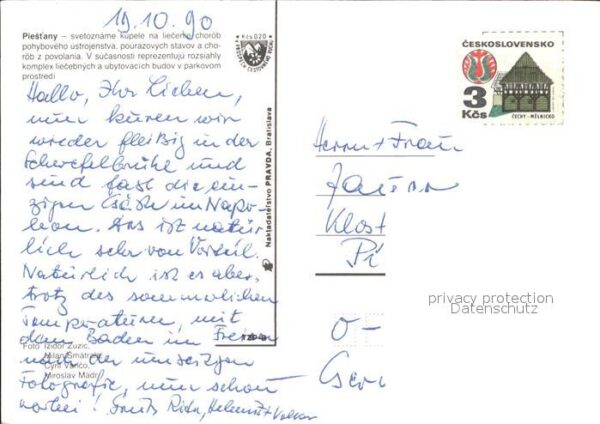 19.10.90
Piešťany – svetoznáme kúpele na liečenie chorôb
pohybového ústrojenstva, poúrazových stavov a cho-
rôb z povolania. V súčasnosti reprezentujú rozsiahly
komplex liečebných a ubytovacích budov v parkovom
prostredí
Hallo, Ihr Lieben,
nun kuren wir
wieder fleißig in der
Schwefelbrühe und
sind fast die ein-
zigen Gäste im Napo-
leon. Das ist natür-
lich sehr von Vorteil.
Natürlich ist es aber,
trotz des sommerlichen
Temperaturen, mit
dem Baden im Freien
nach der
Fotografie, nun schon
vorbei! Gruß Rita, Helmut + Volker
Foto Izidor Zuzic,
Milan Šmatrala
Cyril Vanco,
Miroslav Mádr
Kčs 0,20
Nakladateľstvo PRAVDA, Bratislava
ČESKOSLOVENSKO
3
Kčs
ČECHY - MĚLNICKO
Herrn + Frau
Klost
Pi
O-
privacy protection
Datenschutz